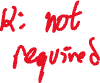 K: not
required